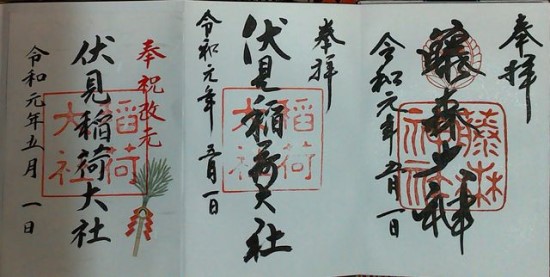 奉拝
藤森神社
藤森神社
令和元年五月一日
奉拝
伏見稲荷大社
稲荷大社
令和元年五月一日
奉祝改元
伏見稲荷大社
稲荷大社
令和元年五月一日